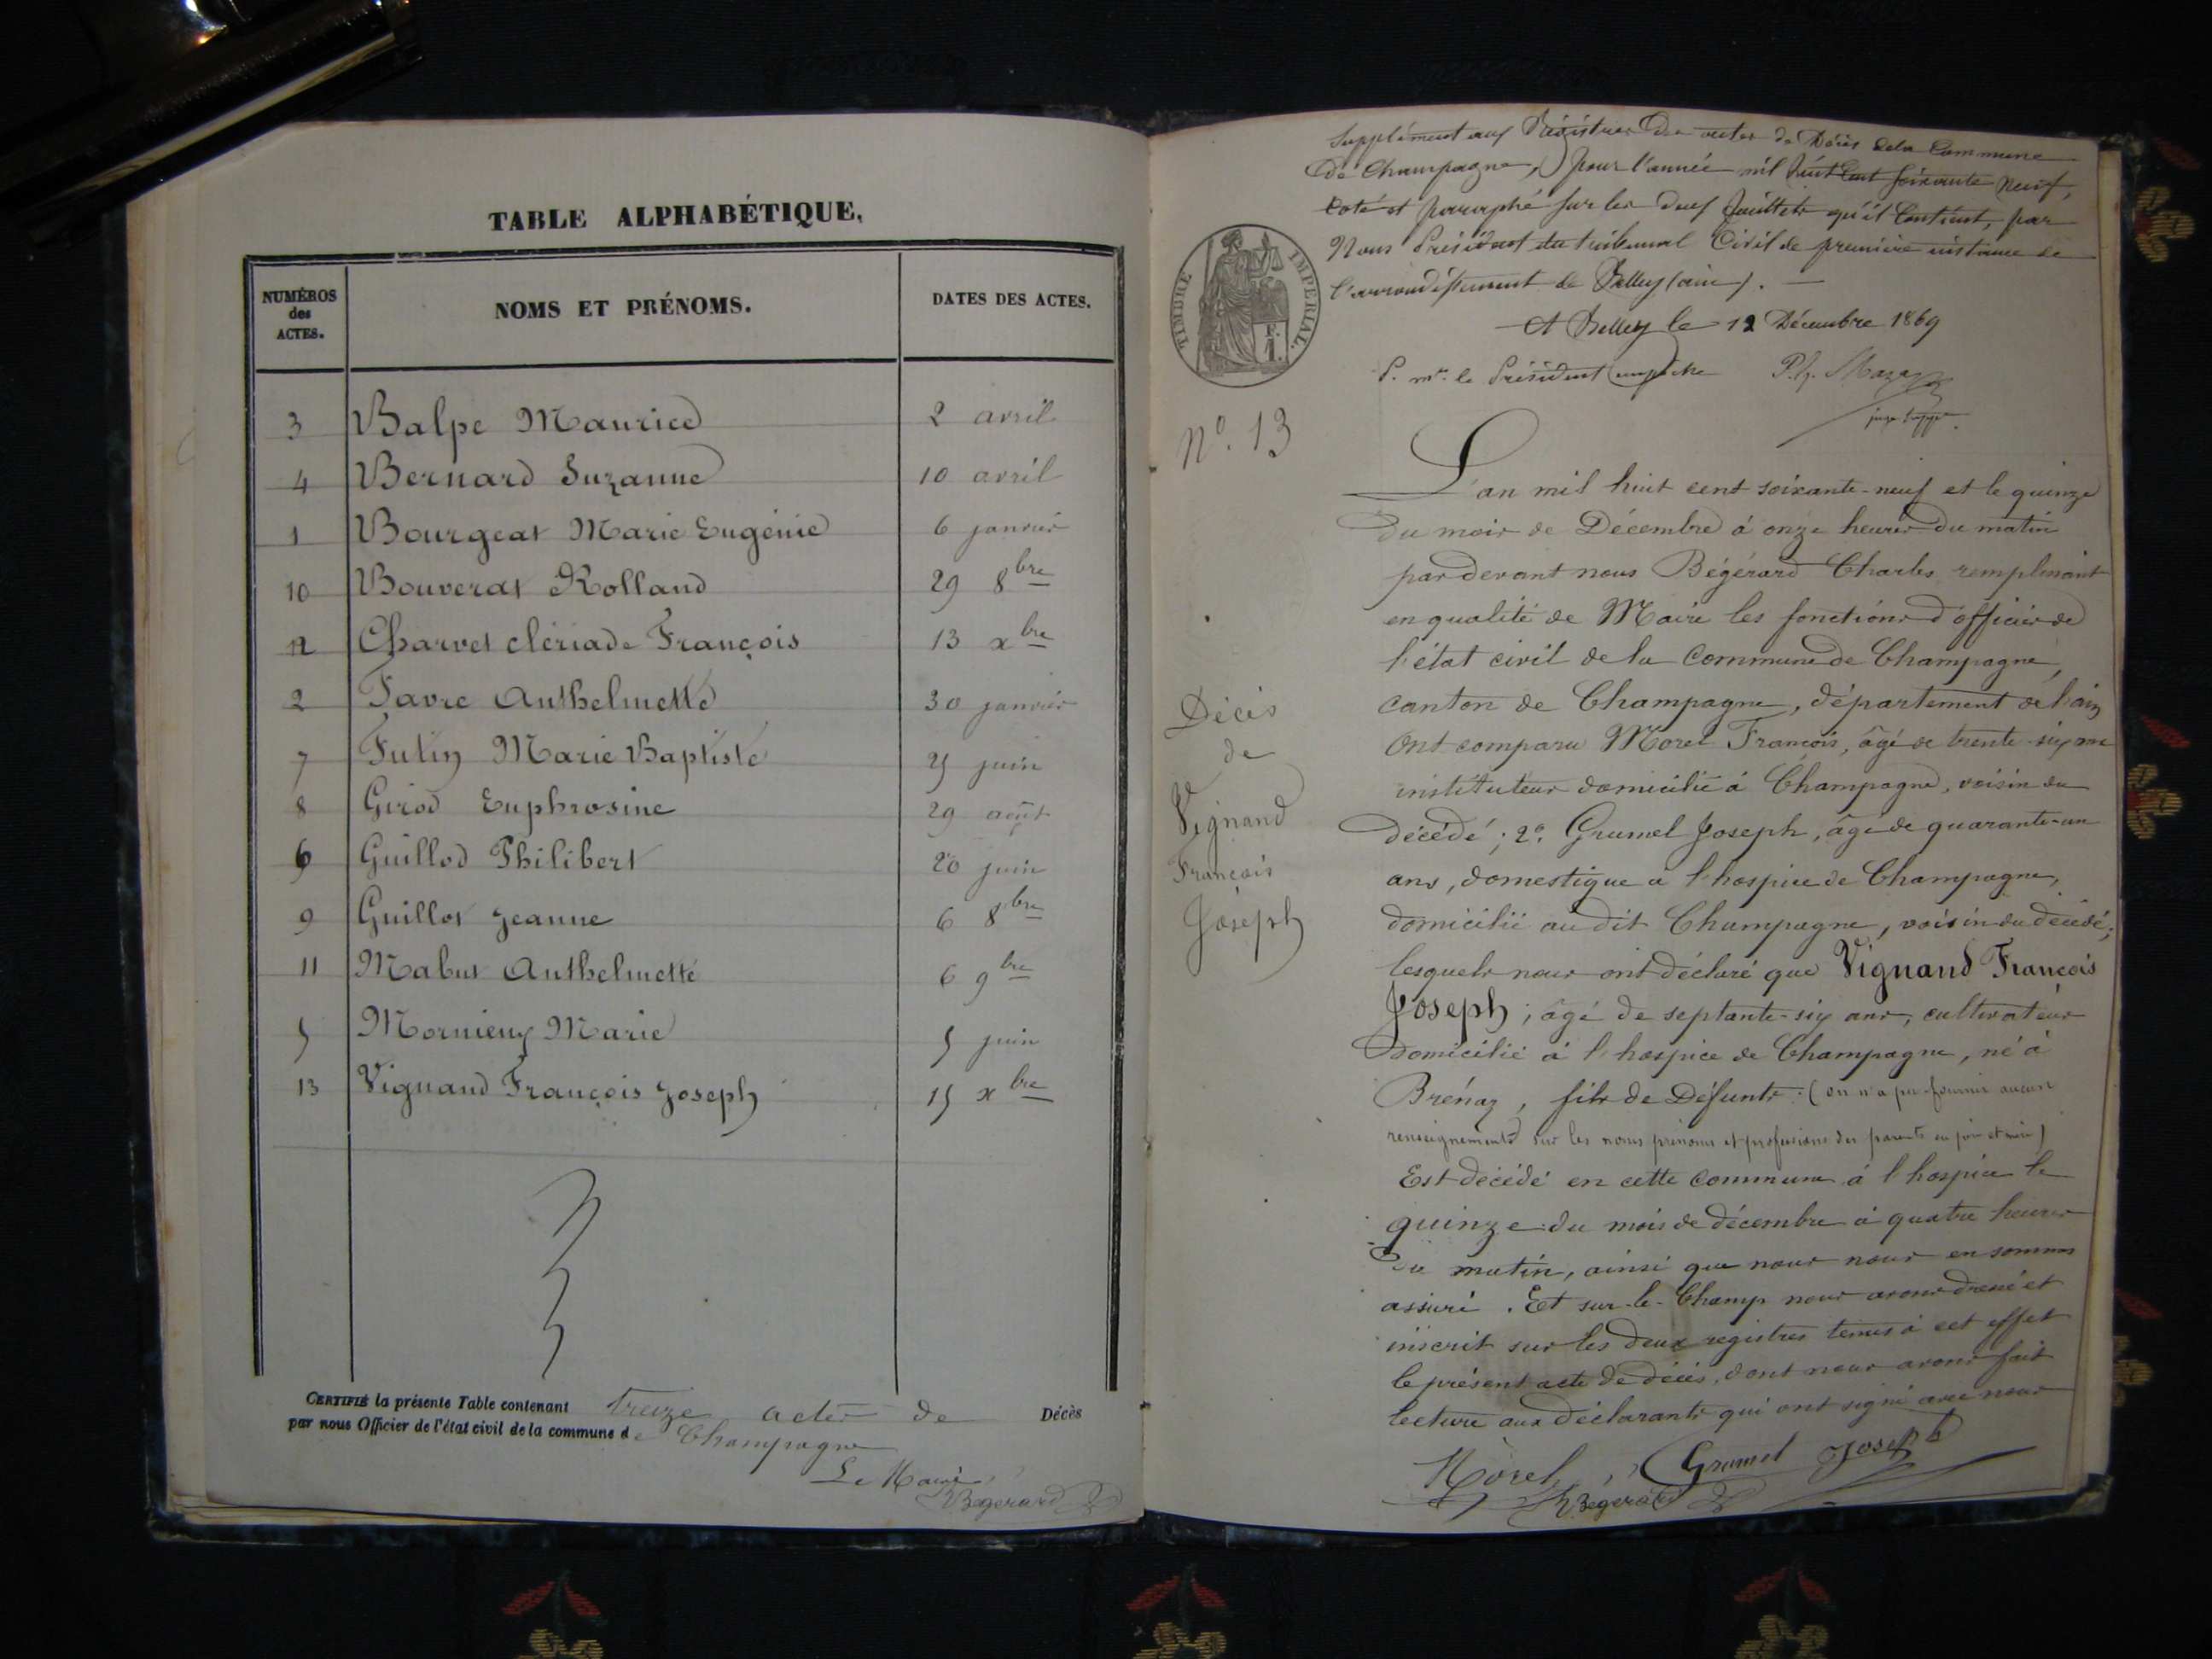 TABLE ALPHABÉTIQUE.
NUMÉROS des ACTES. NOMS ET PRÉNOMS. DATES DES ACTES.
3 Balpe Maurice 2 avril
4 Bernard Suzanne 10 avril
1 Bourgeat Marie Eugénie 6 janvier
10 Bouverat Rolland 29 8bre
12 Charvet clériade François 13 xbre
2 Favre Anthelmette 30 janvier
7 Futin Marie Baptiste juin
8 Girod Euphrosine 29 août
6 Guillod Philibert 20 juin
9 Guillot Jeanne 6 8bre
11 Mabut Anthelmette 6 9bre
5 Mornieux Marie 5 juin
13 Vignand François Joseph 15 xbre
CERTIFIÉ la présente Table contenant treize actes de Décès
par nous Officier de l'état civil de la commune de Champagne
Le Maire,
Bégérard
Supplément aux Régistres des actes de Décès de la Commune
de Champagne, pour l'année mil huit Cent soixante neuf,
Coté et paraphé sur les deux feuillets qu'il Contient, par
Nous Président du tribunal Civil de première instance de
l'arrondissement de Belley (ain). —
A Belley le 12 Décembre 1869
P. mr. le Président empêché
juge supp.
TIMBRE IMPÉRIAL.
F. 1.
No. 13
L'an mil huit cent soixante-neuf et le quinze
du mois de Décembre à onze heures du matin
par devant nous Bégérard Charles remplissant
en qualité de Maire les fonctions d'officier de
l'état civil de la Commune de Champagne,
canton de Champagne, département de l'ain
Ont comparu Morel François, âgé de trente-six ans
instituteur domicilié à Champagne, voisin du
décédé; 2o. Grumel Joseph, âgé de quarante-un
ans, domestique à l'hospice de Champagne,
domicilié au dit Champagne, voisin du décédé;
lesquels nous ont déclaré que Vignand François
Joseph, âgé de septante-six ans, cultivateur
domicilié à l'hospice de Champagne, né à
Brénaz, fils de Défunts: (on n'a pu fournir aucun
renseignements sur les noms prénoms et professions des parents ou père et mère)
Est décédé en cette commune à l'hospice le
quinze du mois de décembre à quatre heures
du matin, ainsi que nous nous en sommes
assuré. Et sur-le-Champ nous avons dressé et
inscrit sur les deux registres tenus à cet effet
le présent acte de décès, dont nous avons fait
lecture aux déclarants qui ont signé avec nous
Décès
de
Vignand
François
Joseph
Morel, Grumel Joseph
Bégérard